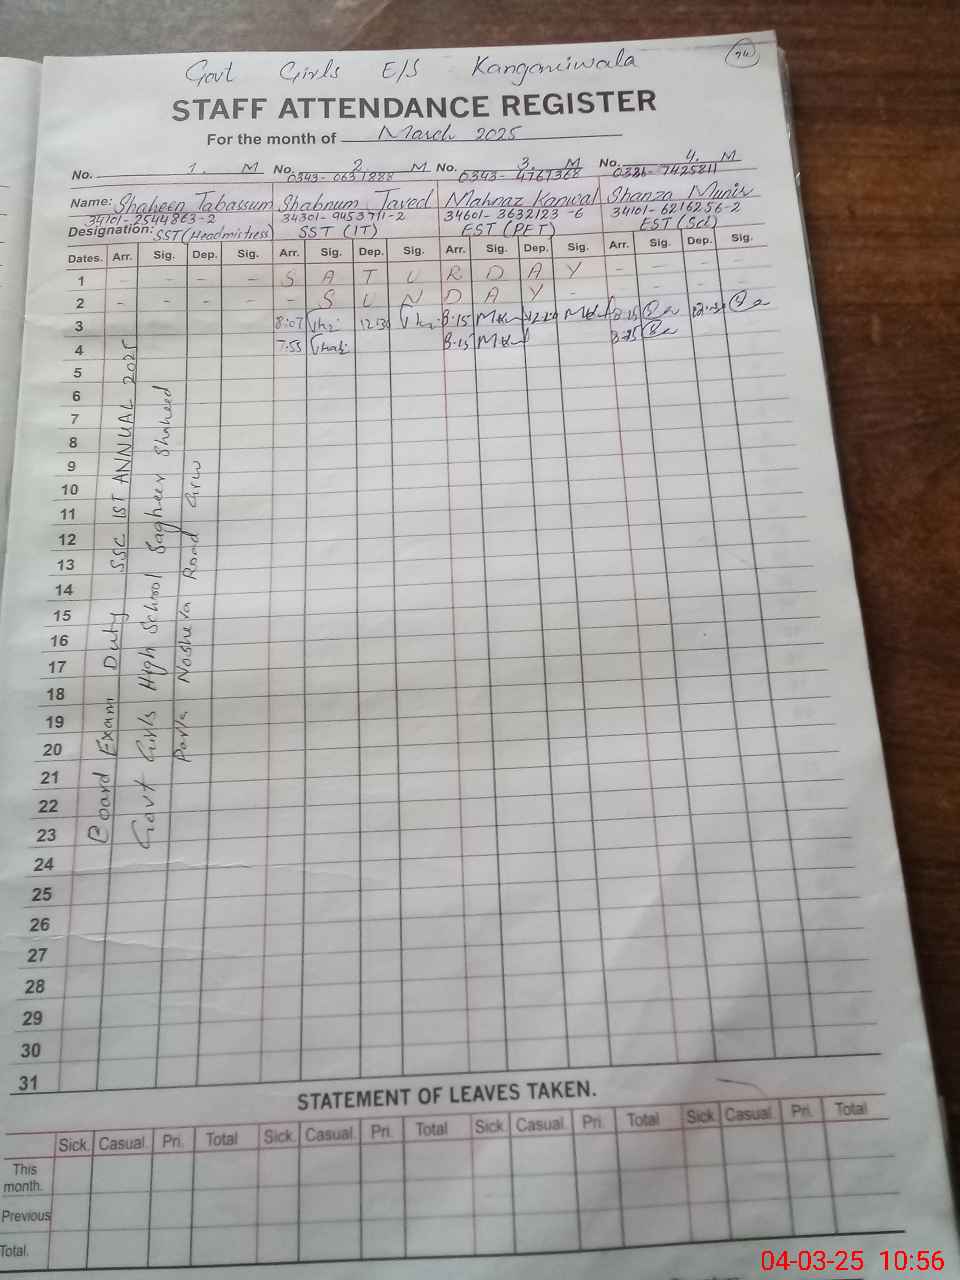 Govt Girls E/S Kanganiwala 24
STAFF ATTENDANCE REGISTER
For the month of March 2025
No. 1. M No. 2. M No. 3. M No. 4. M
0343-0631888 0343-4767368 0321-7425811
Name: Shaheen Tabassum Shabnum Javed Mahnaz Kanwal Shanza Munir
34101-2544863-2 34301-9453711-2 34601-3632123-6 34101-6216256-2
Designation: SST (Headmistress) SST (IT) EST (PET) EST (Sci)
Dates. Arr. Sig. Dep. Sig. Arr. Sig. Dep. Sig. Arr. Sig. Dep. Sig. Arr. Sig. Dep. Sig.
1 - - - - S A T U R D A Y - - - -
2 - - - - - S U N D A Y - - - - -
3 8:07 12:30 8:15 8:15
4 7:55 8:15
5
6
7
8
9
10
11
12
13
14
15
16
17
18
19
20
21
22
23
24
25
26
27
28
29
30
31
Board Exam Duty SSC 1ST ANNUAL 2025
Govt Girls High School Sagheer Shaheed
Park Noshera Road Grw
STATEMENT OF LEAVES TAKEN.
Sick Casual Pri. Total Sick. Casual. Pri. Total Sick. Casual. Pri. Total Sick. Casual. Pri. Total
This
month.
Previous
Total.
04-03-25 10:56